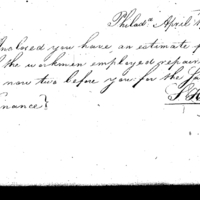 Philada April
Inclosed you have an estimate
the workmen employed repair
now two before you for the